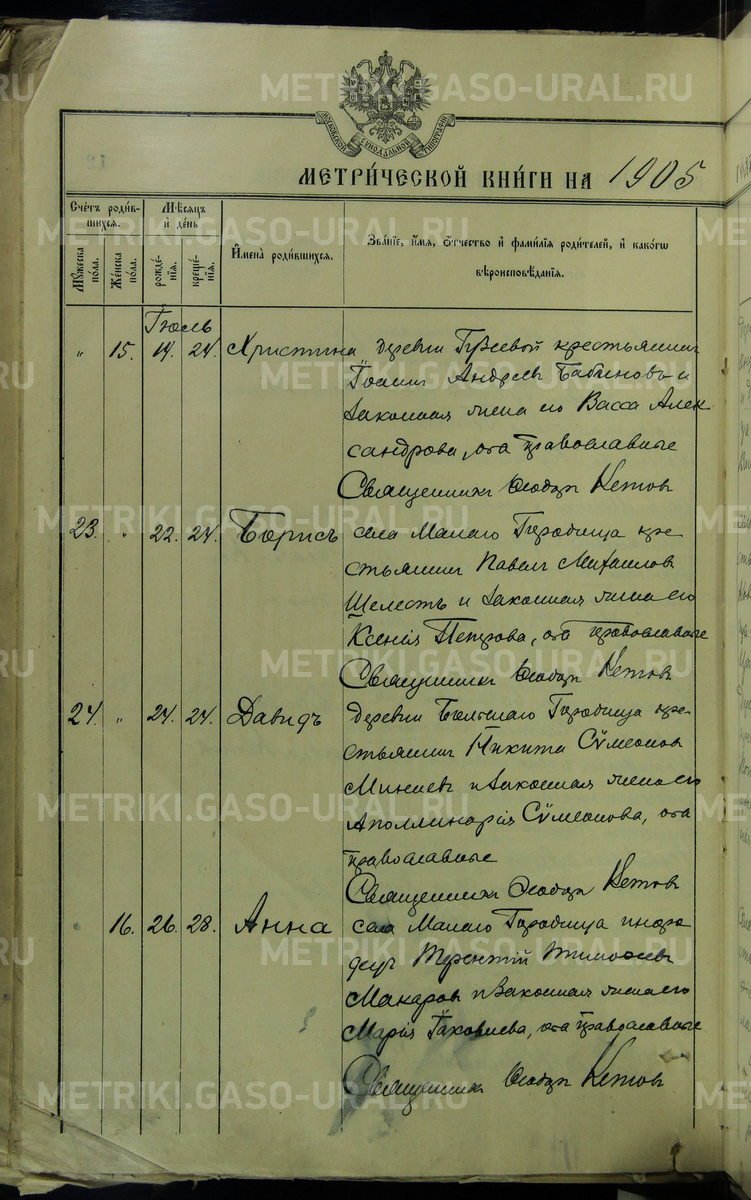 МОСКОВСКОЙ СѴНОДАЛЬНОЙ ТИПОГРАФІИ
МЕТРИ́ЧЕСКОЙ КНИ́ГИ НА 1905
Сче́тъ роди́в-
шихся.
Мѣ́сяцъ
и де́нь
Мꙋ́жеска
по́ла.
Же́нска
по́ла.
рожде́-
нїя.
креще́-
нїя.
И҆мена̀ роди́вшихся.
Зва́нїе, и҆́мя, ѻ҆́тчество и҆ фами́лїя роди́телей, и҆ како́гѡ
вѣроисповѣ́данїя.
Іюль
" 15. 14. 24. Христина деревни крестьянинъ
Іоаннъ Андреевъ Бабиновъ и
законная жена его Васса Алек
сандрова, оба православные
Священникъ Ѳеодоръ Кетовъ
23. " 22. 24. Борисъ села Малаго Городища кре-
стьянинъ Павелъ Михаиловъ
Шелестъ и законная жена его
Ксенія Петрова, оба православные
Священникъ Ѳеодоръ Кетовъ
24. " 24. 24. Давидъ деревни Большаго Городища кре-
стьянинъ Никита Сѵмеоновъ
Минеевъ и законная жена его
Аполлинарія Сѵмеонова, оба
православные
Священникъ Ѳеодоръ Кетовъ
" 16. 26. 28. Анна села Малаго Городища
Терентій Тимоѳеевъ
Макаровъ и законная жена его
Марія Іаковлева, оба православные
Священникъ Ѳеодоръ Кетовъ
METRIKI.GASO-URAL.RU